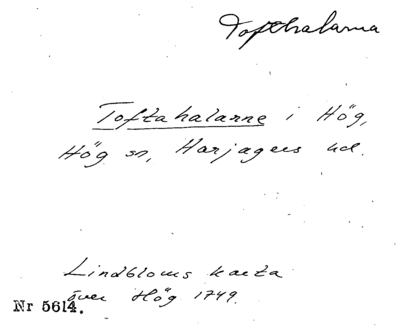 Tofthalarna
Toftahalarne i Hög,
Hög sn, Harjagers hd.
Lindbloms karta
över Hög 1749.
Nr 5614.